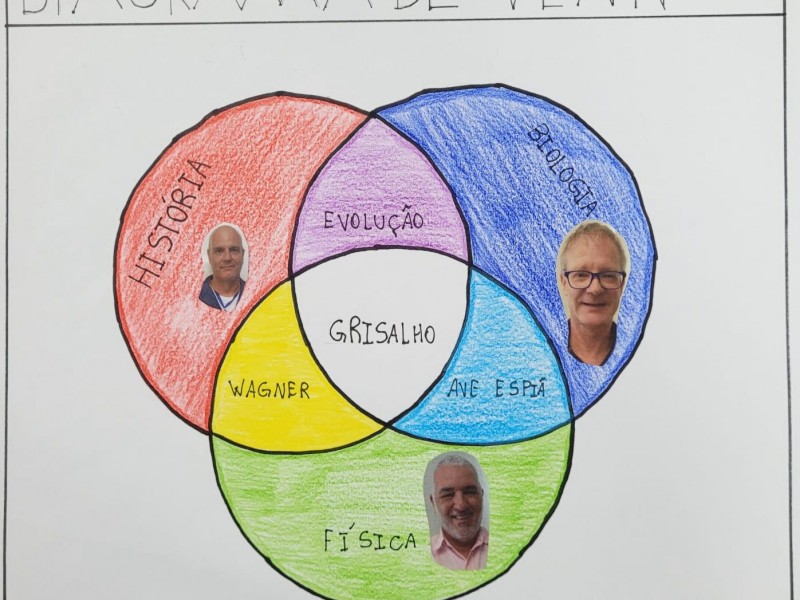 DIAGRAMA DE VENN
HISTÓRIA
BIOLOGIA
EVOLUÇÃO
GRISALHO
WAGNER
AVE ESPIÃ
FÍSICA